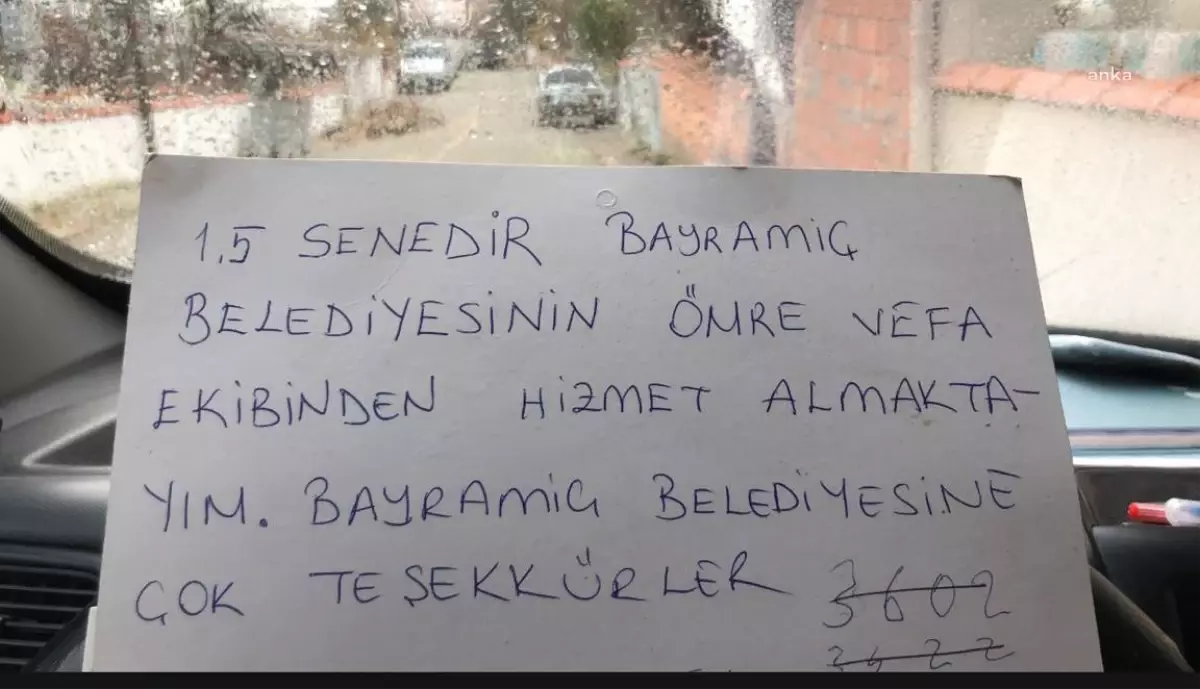 anka
1,5 SENEDİR BAYRAMİÇ
BELEDİYESİNİN ÖMRE VEFA
EKİBİNDEN HİZMET ALMAKTA-
YIM. BAYRAMİÇ BELEDİYESİNE
ÇOK TEŞEKKÜRLER 3602